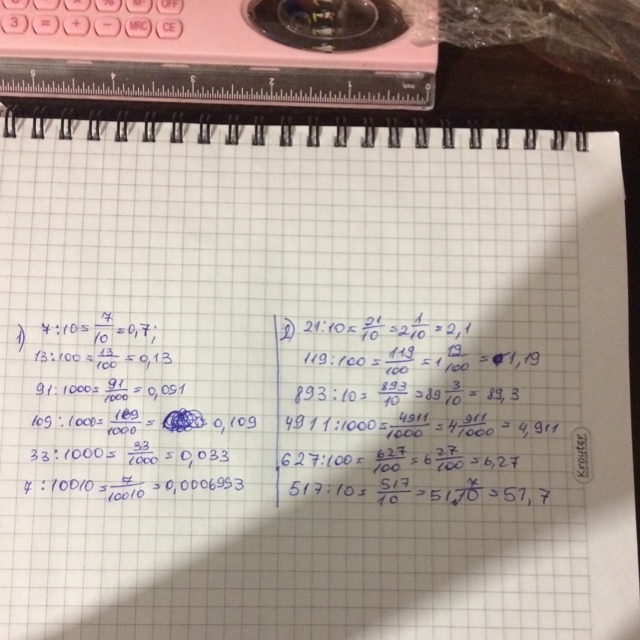 1) 7:10=7/10=0,7;
13:100=13/100=0,13
91:1000=91/1000=0,091
109:1000=109/1000= 0,109
33:1000=33/1000=0,033
7:10010=7/10010=0,0006993
2) 21:10=21/10=2 1/10=2,1
119:100=119/100=1 19/100=1,19
893:10=893/10=89 3/10=89,3
4911:1000=4911/1000=4 911/1000=4,911
627:100=627/100=6 27/100=6,27
517:10=517/10=51 7/10=51,7
Kroyter
3 = + - MRC CE
OFF
5 4 3 2 1 0